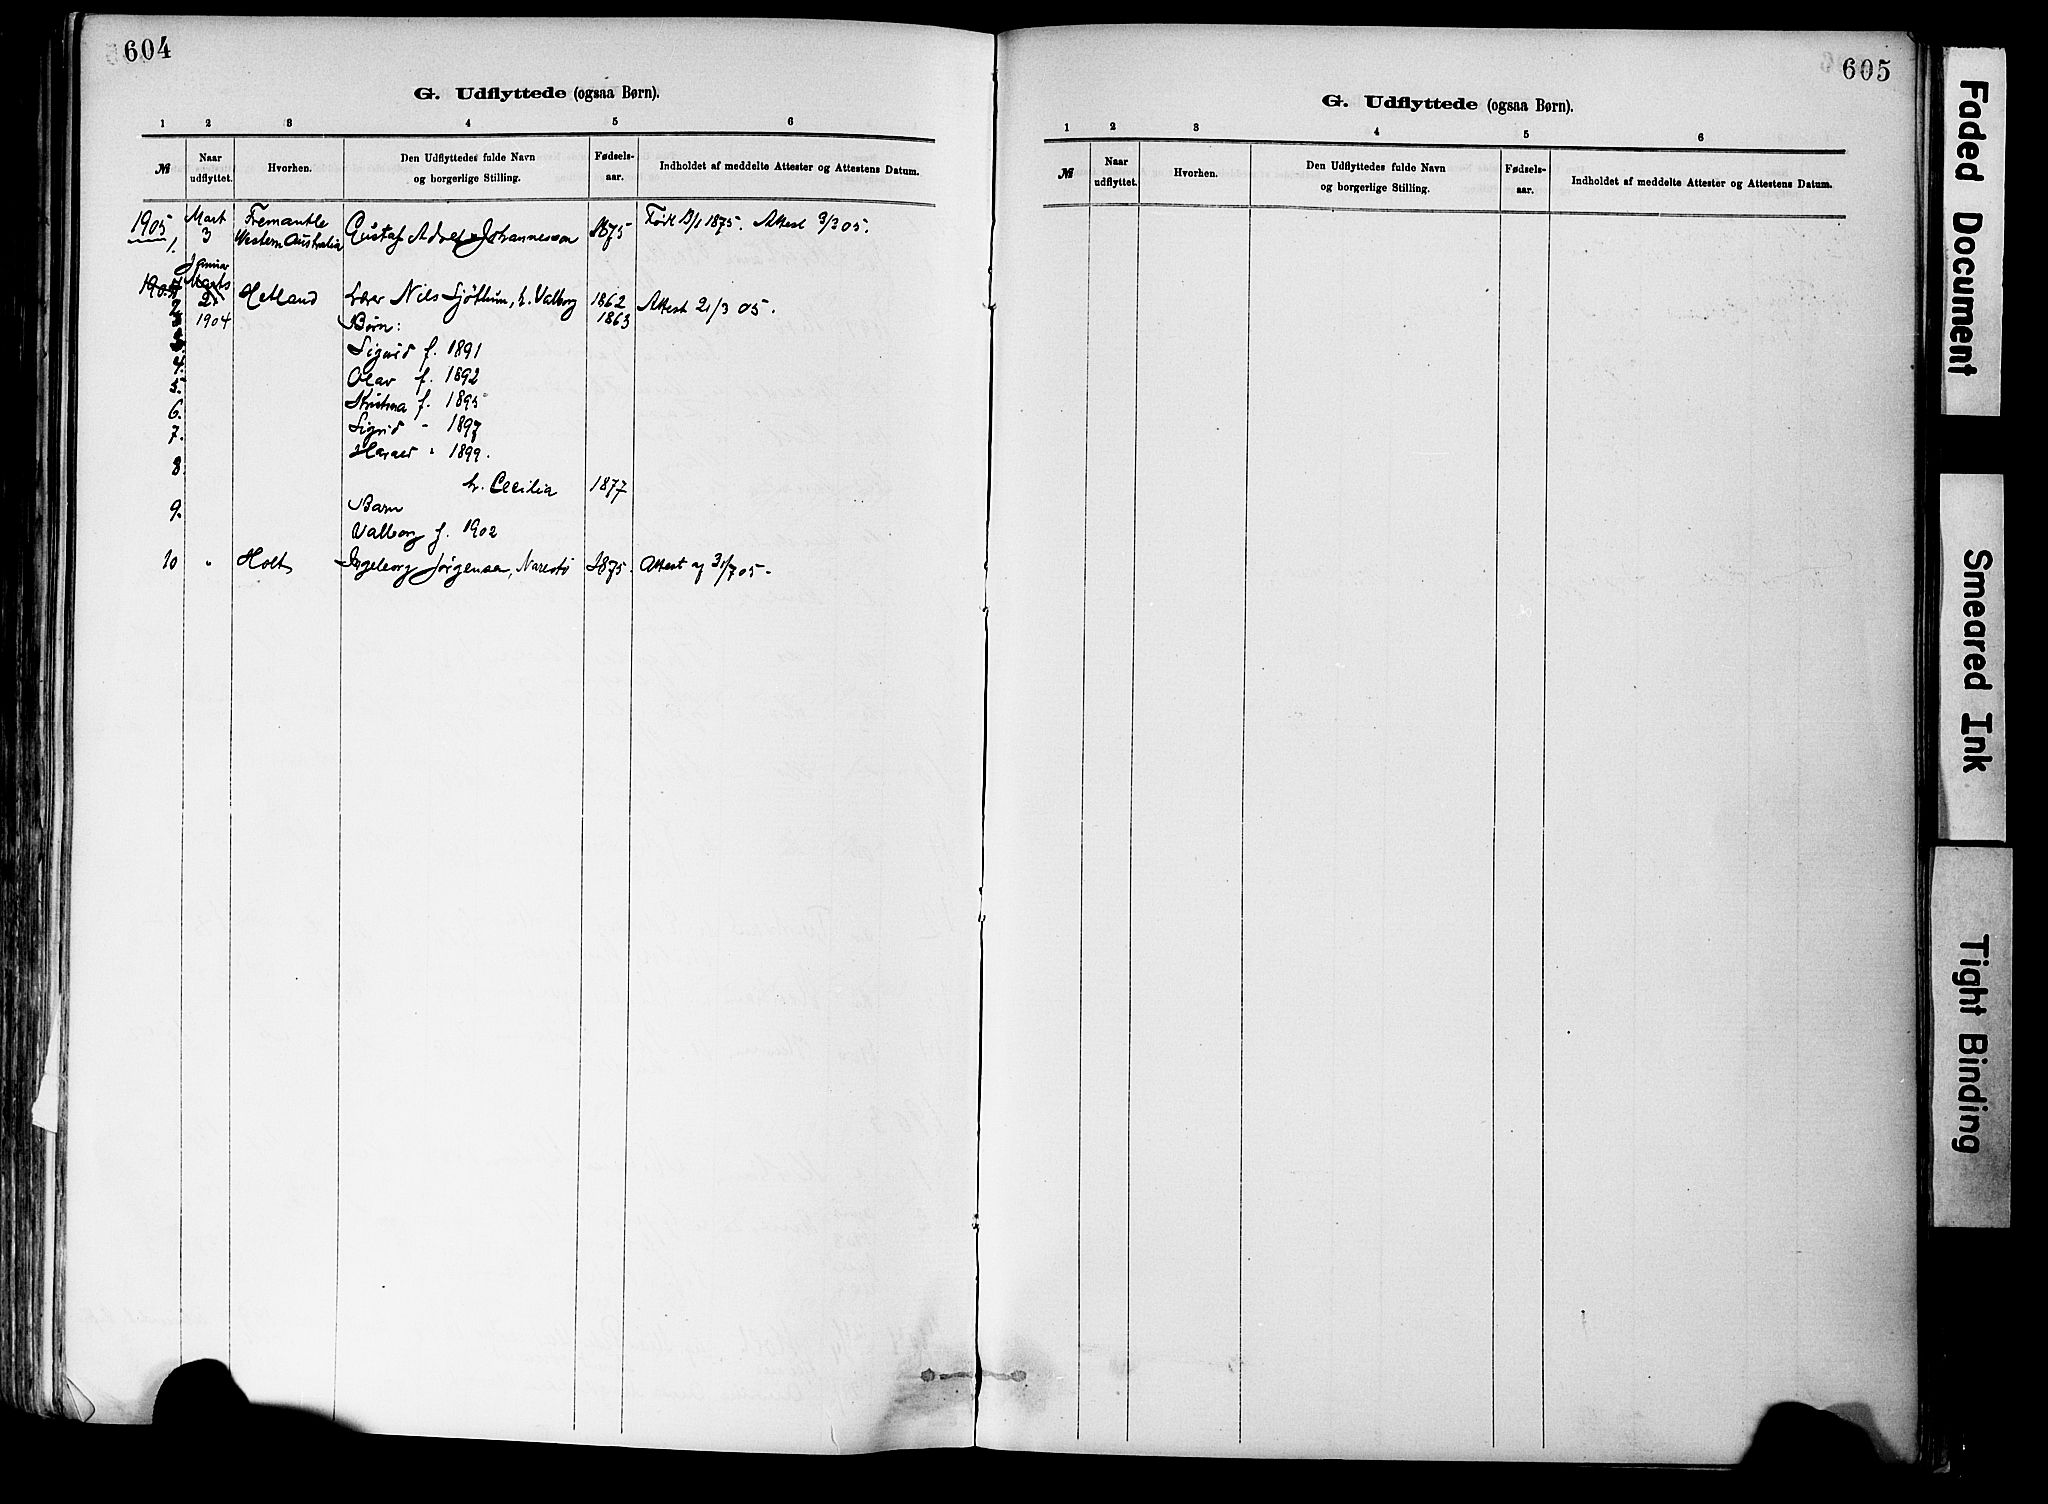 604
G. Udflyttede (ogsaa Børn).
1 2 3 4 5 6
№ Naar udflyttet. Hvorhen. Den Udflyttedes fulde Navn og borgerlige Stilling. Fødsels-aar. Indholdet af meddelte Attester og Attestens Datum.
1905 Mart Fremantle
1. 3 Western Australia Gustaf Adolf Johannesson 1875 Født 1875. Attest 3/3 05.
Januar
Marts
2 21 Hetland Nils h. Valborg 1862 Attest 21/3 05.
1904 Børn: 1863
f. 1891
4. Olav f. 1892
5. f. 1895
6. Sigrid - 1897
7. 1899.
8. h. Cecilia 1877
9. Barn
Valborg f. 1902
10 " Holt Ingeborg Jørgensen, Narestø 1875. Attest af 31/7 05-
605
G. Udflyttede (ogsaa Børn).
1 2 3 4 5 6
№ Naar udflyttet. Hvorhen. Den Udflyttedes fulde Navn og borgerlige Stilling. Fødsels-aar. Indholdet af meddelte Attester og Attestens Datum.
Faded Document
Smeared Ink
Tight Binding